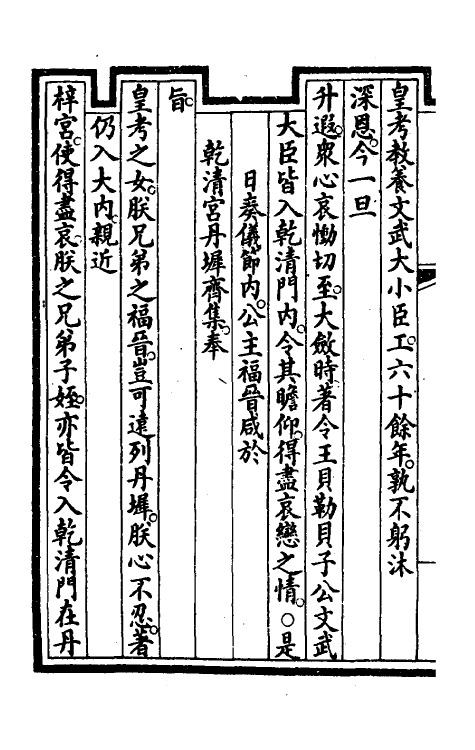 皇考教養文武大小臣工六十餘年。孰不躬沐
深恩。今一旦
升遐。衆心哀慟切至。大斂時著令王貝勒貝子公文武
大臣皆入乾清門內。令其瞻仰。得盡哀戀之情。○是
日奏儀節內。公主福晉咸於
乾清宮丹墀齊集。奉
旨。
皇考之女。朕兄弟之福晉。豈可遠列丹墀。朕心不忍。著
仍入大內。親近
梓宮。使得盡哀。朕之兄弟子姪。亦皆令入乾清門在丹